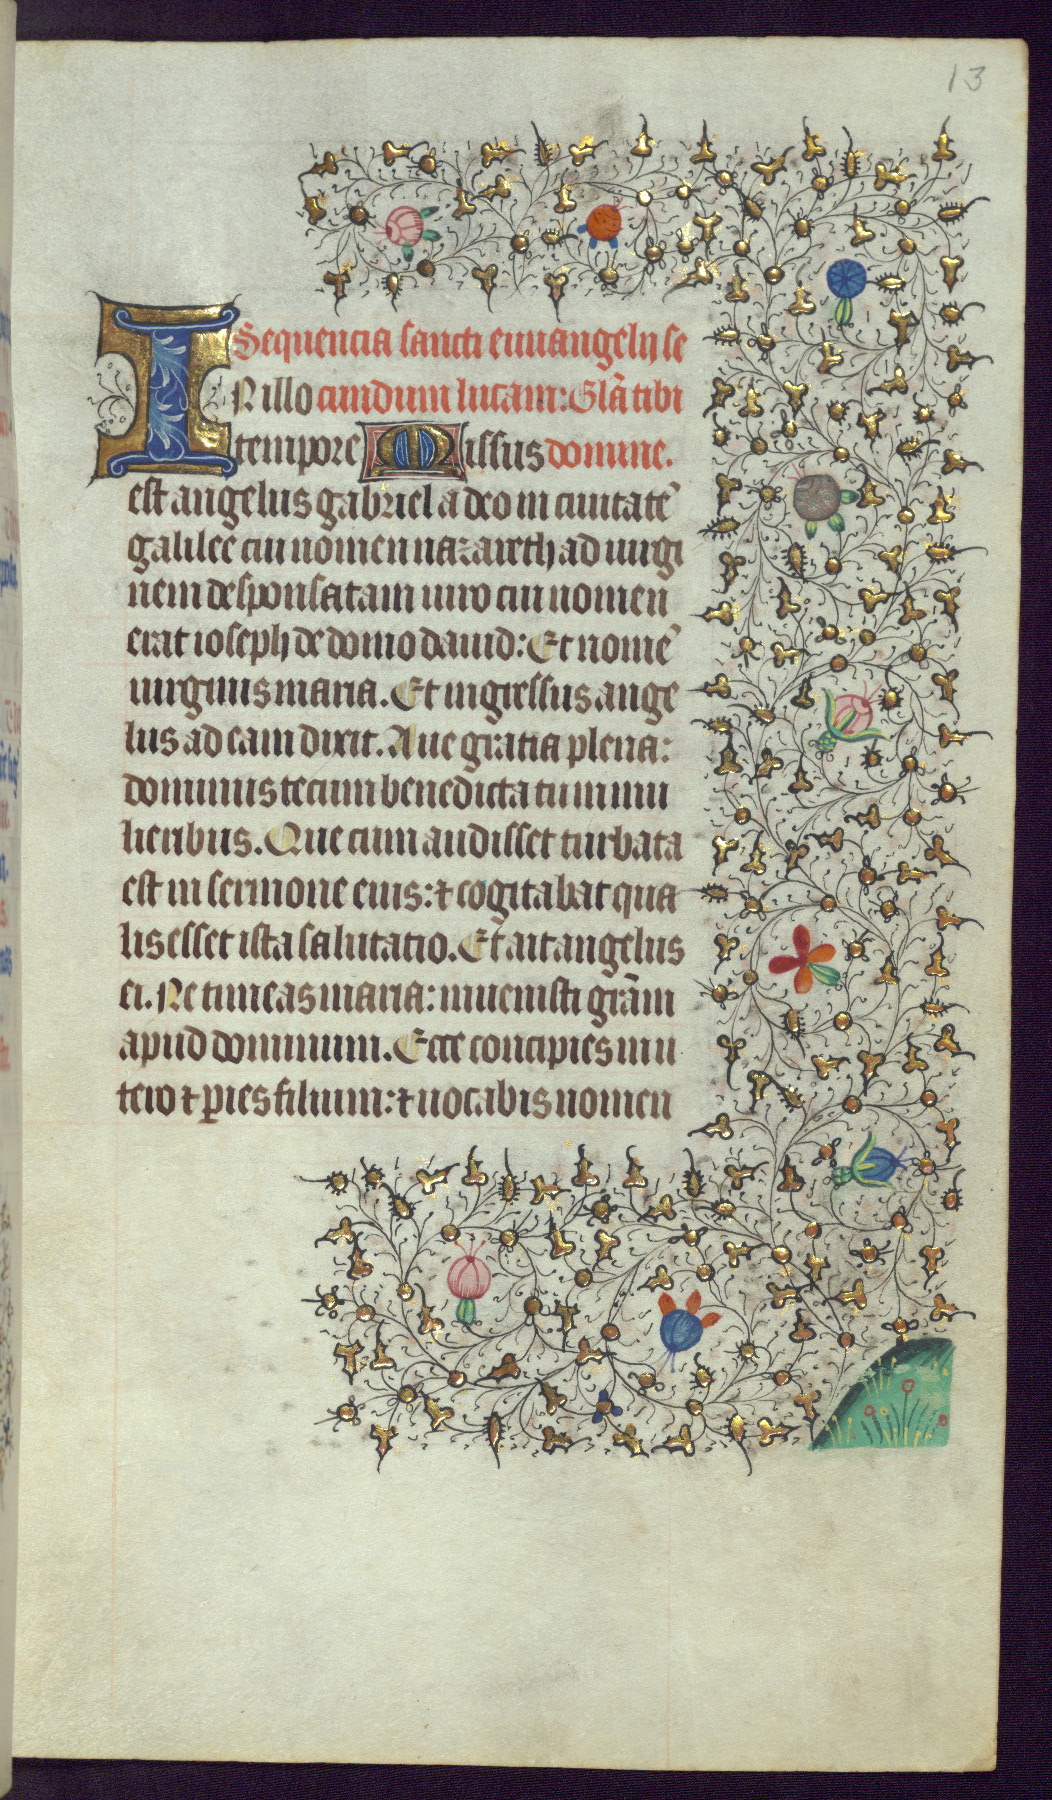 13
Sequencia sancti euuangelij se
IN illo cundum lucam: Glā tibi
tempore Missus domine.
est angelus gabriel a deo in ciuitatē
galilee cui nomen nazareth ad uirgi
nem desponsatam uiro cui nomen
erat ioseph de domo dauid: Et nomē
uirginis maria. Et ingressus ange
lus ad eam dixit. Aue gratia plena:
dominus tecum benedicta tu in mu
lieribus. Que cum audisset turbata
est in sermone eius: ⁊ cogitabat qua
lis esset ista salutatio. Et ait angelus
ei. Ne timeas maria: inuenisti grām
apud dominum. Ecce concipies in u
tero ⁊ ꝑies filium: ⁊ uocabis nomen